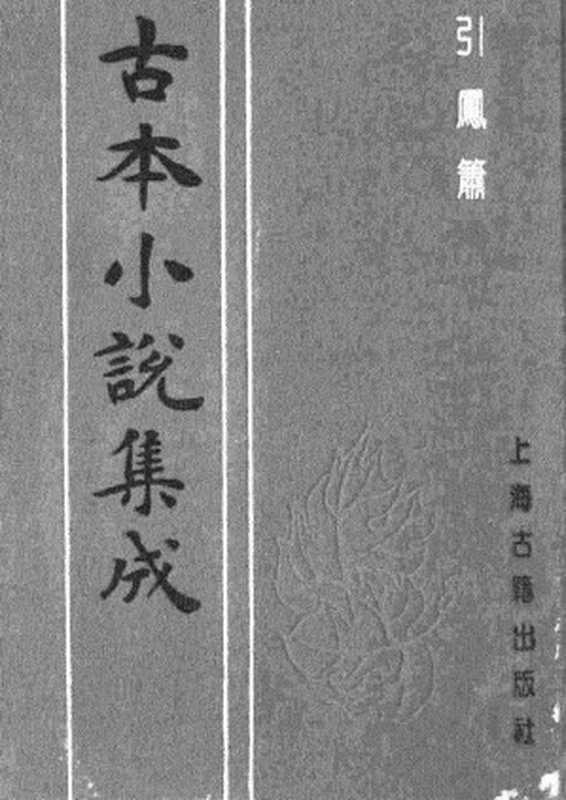 引鳳簫
上海古籍出版社
古本小說集成